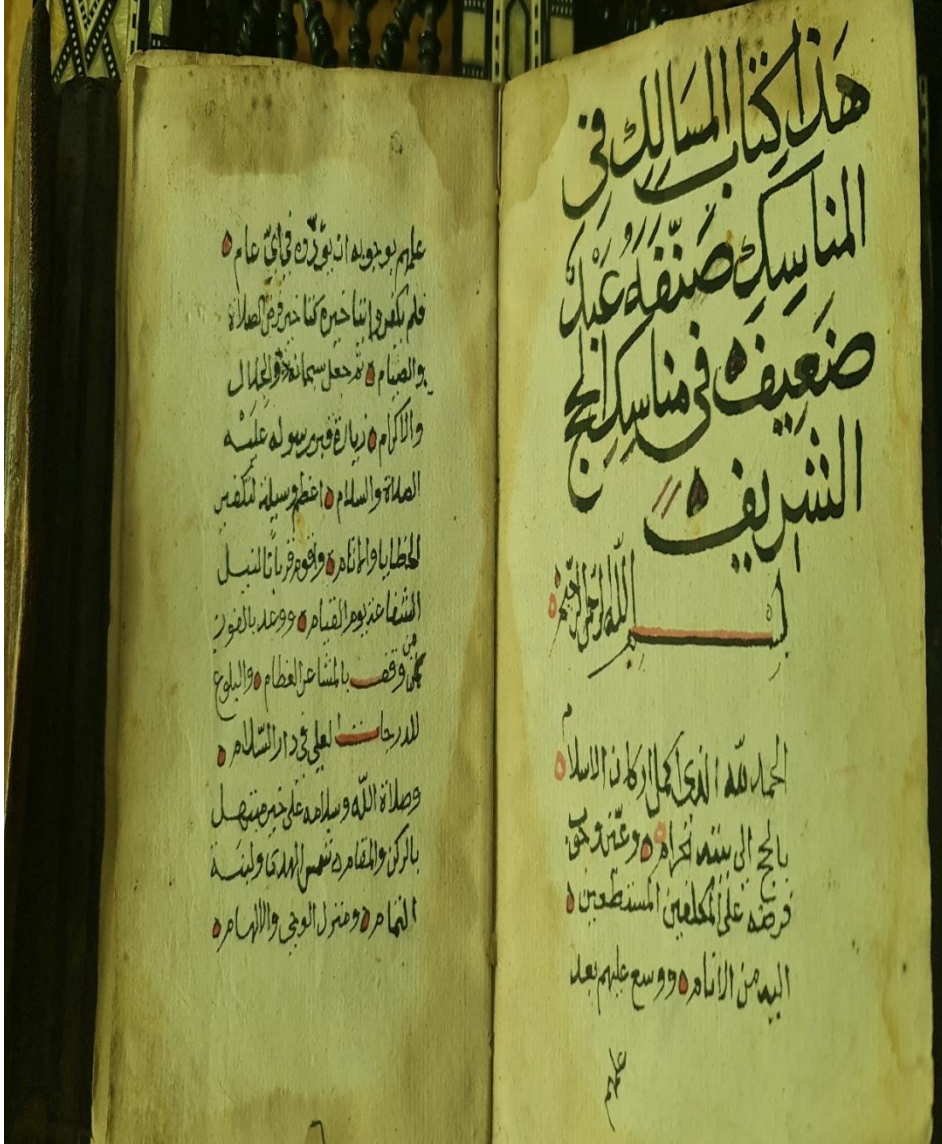 هَذَا كِتَابُ المَسَالِكِ فِى
المناسِكِ صَنّفَهُ عَبْدٌ
ضَعِيف فى مناسِكِ الحج
الشريف
بسم الله الرحمن الرحيم
الحمد لله الذى اكمل اركان الاسلام
بالحج الى بيته الحرام وعين وجوب
فرضه على المكلفين المستطعين
اليه من الانام ووسع عليهم بعد
علمهم
علمهم بوجوبه ان يؤدّوه في ايّ عام
فلم يكفر
والصيام ثم جعل سبحانه ذو الجلال
والاكرام زيارة قبر رسوله عليْه
الصلاة والسلام اعظم وسيلة لتكفير
الخطايا والاثام واقوم قربانا لنيل
الشفاعة يوم القيام ووعد بالفوز
من وقف بالمشاعر العظام والبلوغ
للدرجات لعلى فى دار السّلام
وصلاة الله وسلامه على خير مبتهل
بالركن والمقام شمس الهدى ولبنة
التمام ومنزل الوحى والالهام